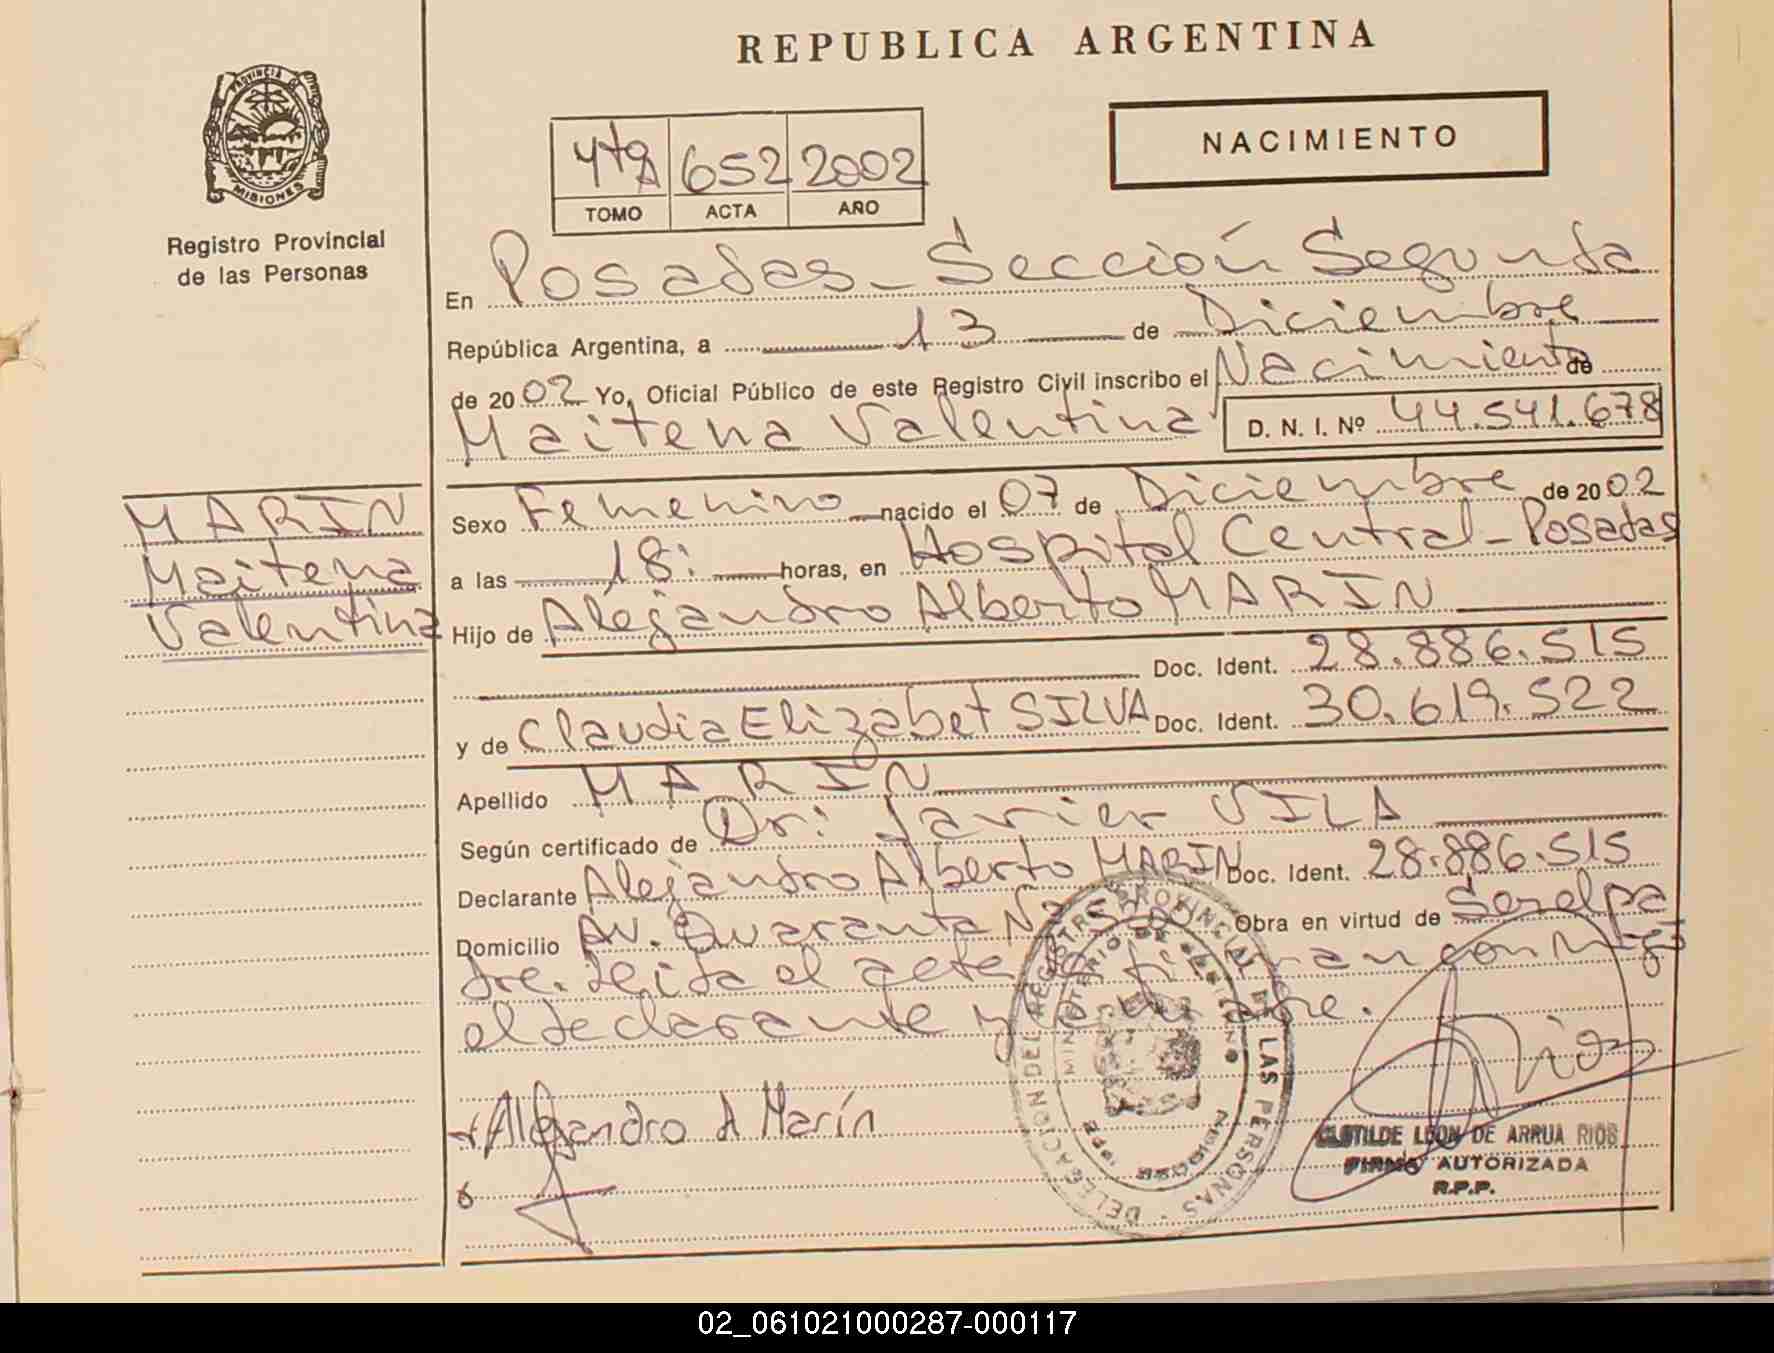 REPUBLICA ARGENTINA
PROVINCIA DE
MISIONES
Registro Provincial
de las Personas
NACIMIENTO
4to 652 2002
TOMO ACTA AÑO
En Posadas - Sección Segunda
República Argentina, a 13 de Diciembre
de 2002 Yo, Oficial Público de este Registro Civil inscribo el Nacimiento de
Maitena Valentina D. N. I. Nº 44.541.678
MARIN
Maitena
Valentina
Sexo Femenino nacido el 07 de Diciembre de 2002
a las 18: horas, en Hospital Central - Posadas
Hijo de Alejandro Alberto MARIN
Doc. Ident. 28.886.515
y de Claudia Elizabet SILVA Doc. Ident. 30.619.522
Apellido MARIN
Según certificado de Dr: Javier VILA
Declarante Alejandro Alberto MARIN Doc. Ident. 28.886.515
Domicilio Av. Quaranta Nº Obra en virtud de Ser el pa
dre. Leida el acta firman conmigo
el declarante y la madre.
Alejandro A Marín
Rios
DELEGACION DEL REGISTRO PROVINCIAL DE LAS PERSONAS
MINISTERIO DE GOBIERNO
MISIONES
CLOTILDE LEON DE ARRUA RIOS
FIRMA AUTORIZADA
R.P.P.
02_061021000287-000117